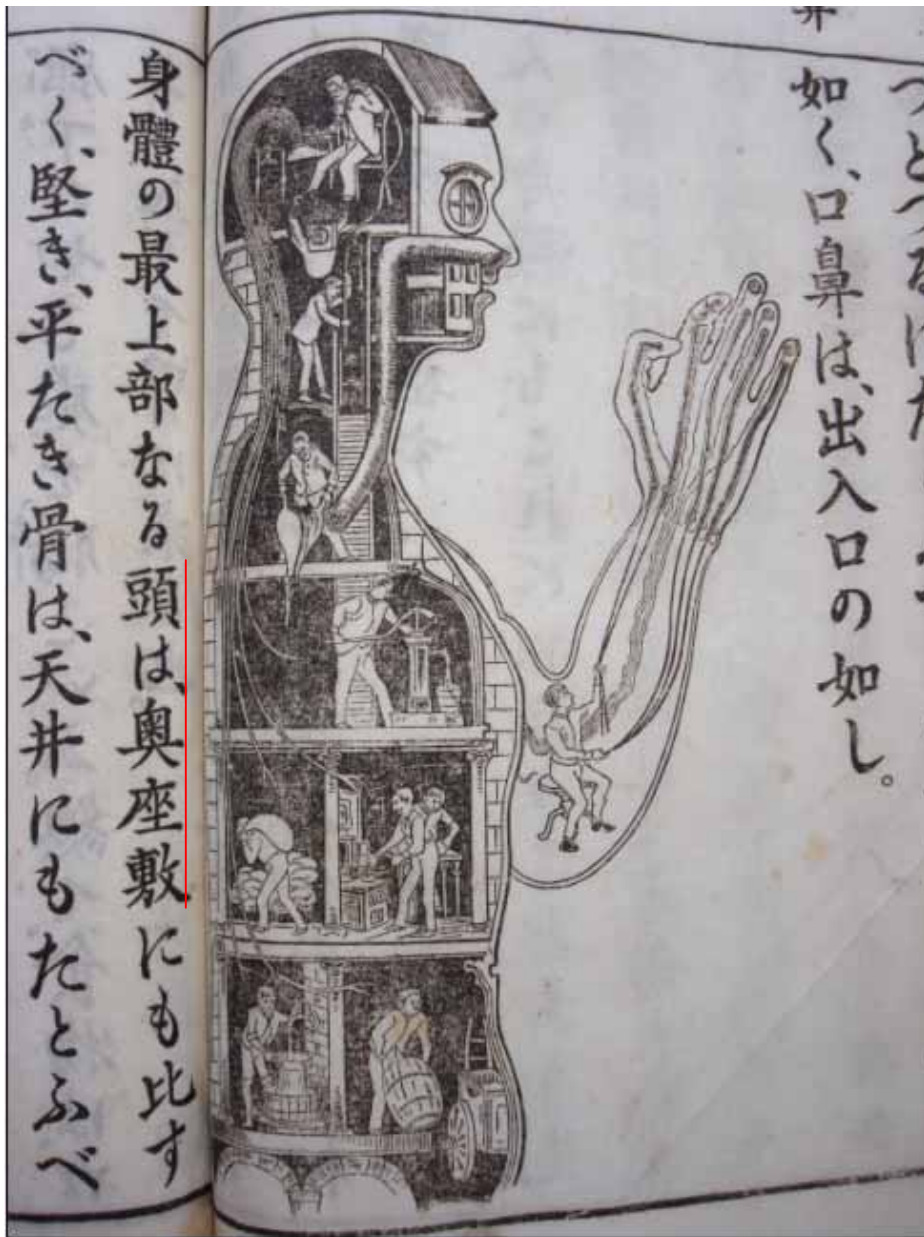 如く、口鼻は、出入口の如し。
身體の最上部なる頭は、奧座敷にも比す
べく、堅き、平たき骨は、天井にもたとふべ